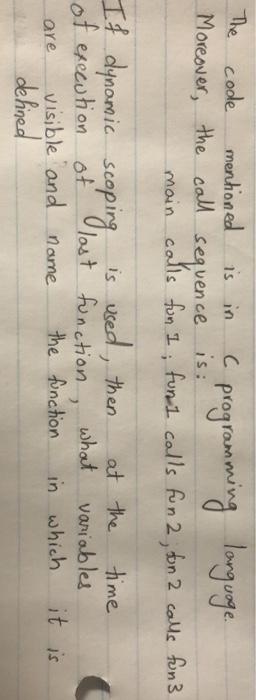 The code mentioned is in C programming language.
Moreover, the call sequence is:
main calls fun 1 ; fun 1 calls fun 2 ; fun 2 calls fun 3
If dynamic scoping is used, then at the time
of execution of last function, what variables
are visible and name the function in which it is
defined